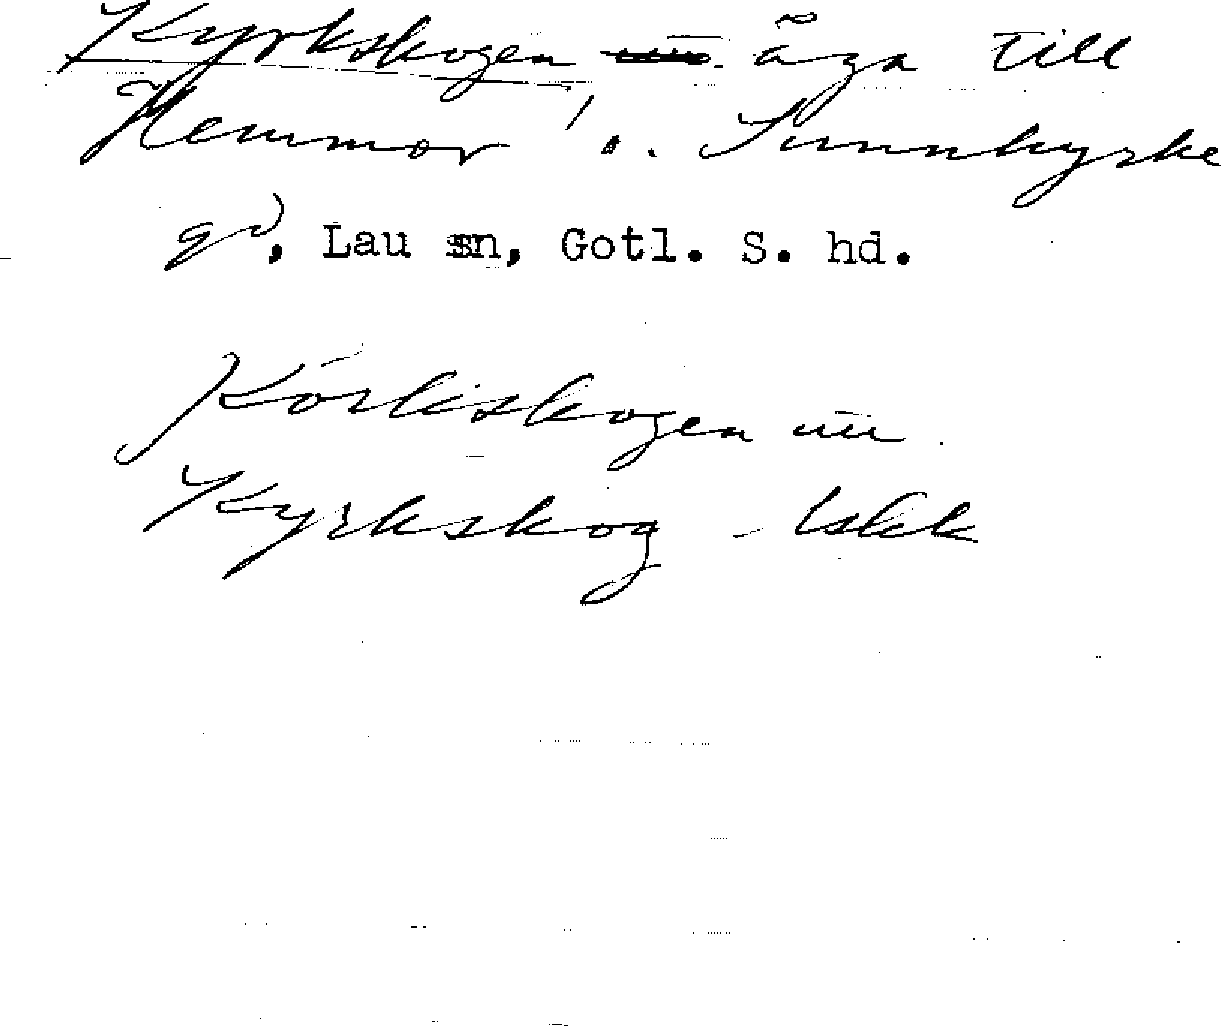 Kyrkskogen äga till
Hemmor o. Sunnkyrke
gd, Lau sn, Gotl. S. hd.
Körkskogen
Kyrkskog - lskk